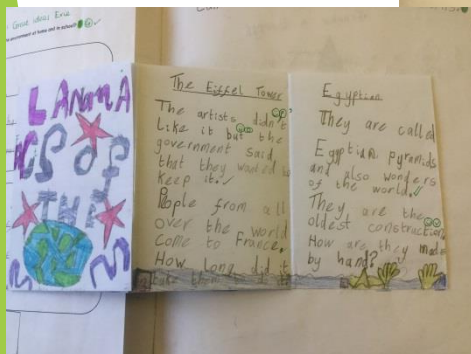 Great ideas Evie
the environment at home and in school?
LANDMA
RKS of
THE
The Eiffel Tower
The artists didn't
Like it but the
government said
that they wanted to
keep it.
People from all
over the world
come to France.
How long did it
take them
Egyptian
They are called
Egptian pyramids
and also wonders
of the world.
They are the
oldest construction
How are they made
by hand?